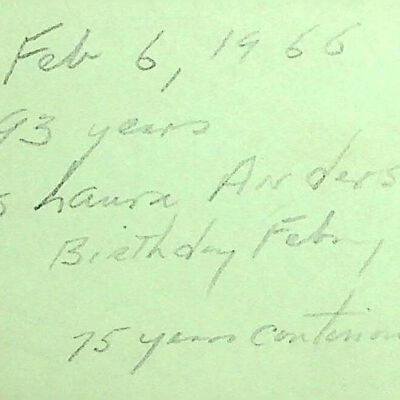 Feb 6, 1966
93 years
s Laura Anders
Birthday Febry
75 years continiou